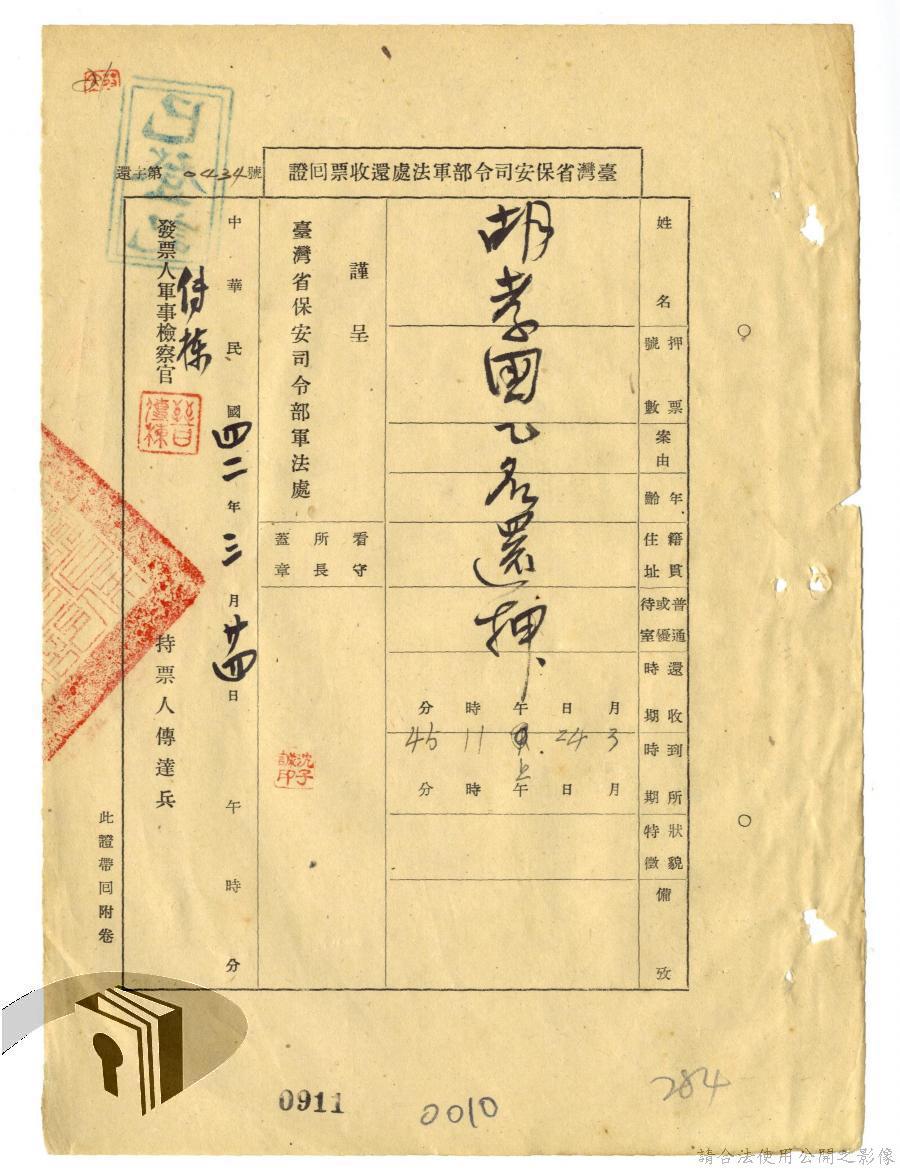 臺灣省保安司令部軍法處還收票回證
還字第0434號
已登記
姓名
押票號數
案由
年齡
籍貫住址
普通或優待室
還收時期
到所時期
狀貌特徵
備攷
胡孝國乙名還押
月日午時分
3 24 上 11 45
月日午時分
謹呈
臺灣省保安司令部軍法處
看守所長蓋章
沈子誠印
中華民國四二年三月廿四日午時分
發票人軍事檢察官
持票人傳達兵
此證帶回附卷
0911
0010
284
請合法使用公開之影像